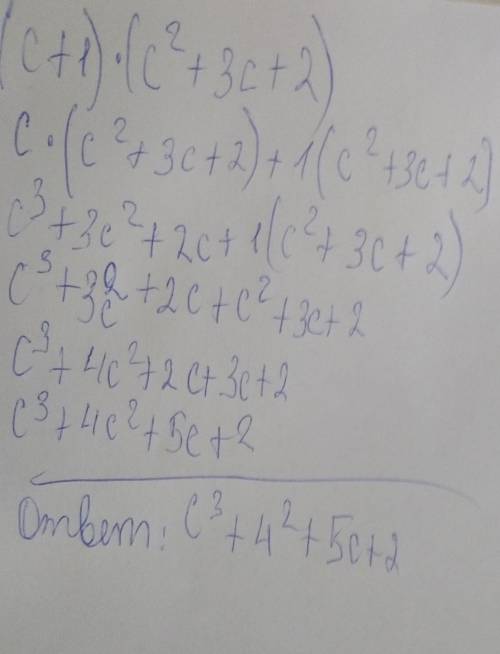 (c+1)·(c²+3c+2)
c·(c²+3c+2)+1(c²+3c+2)
c³+3c²+2c+1(c²+3c+2)
c³+3c²+2c+c²+3c+2
c³+4c²+2c+3c+2
c³+4c²+5c+2
Ответ: c³+4²+5c+2